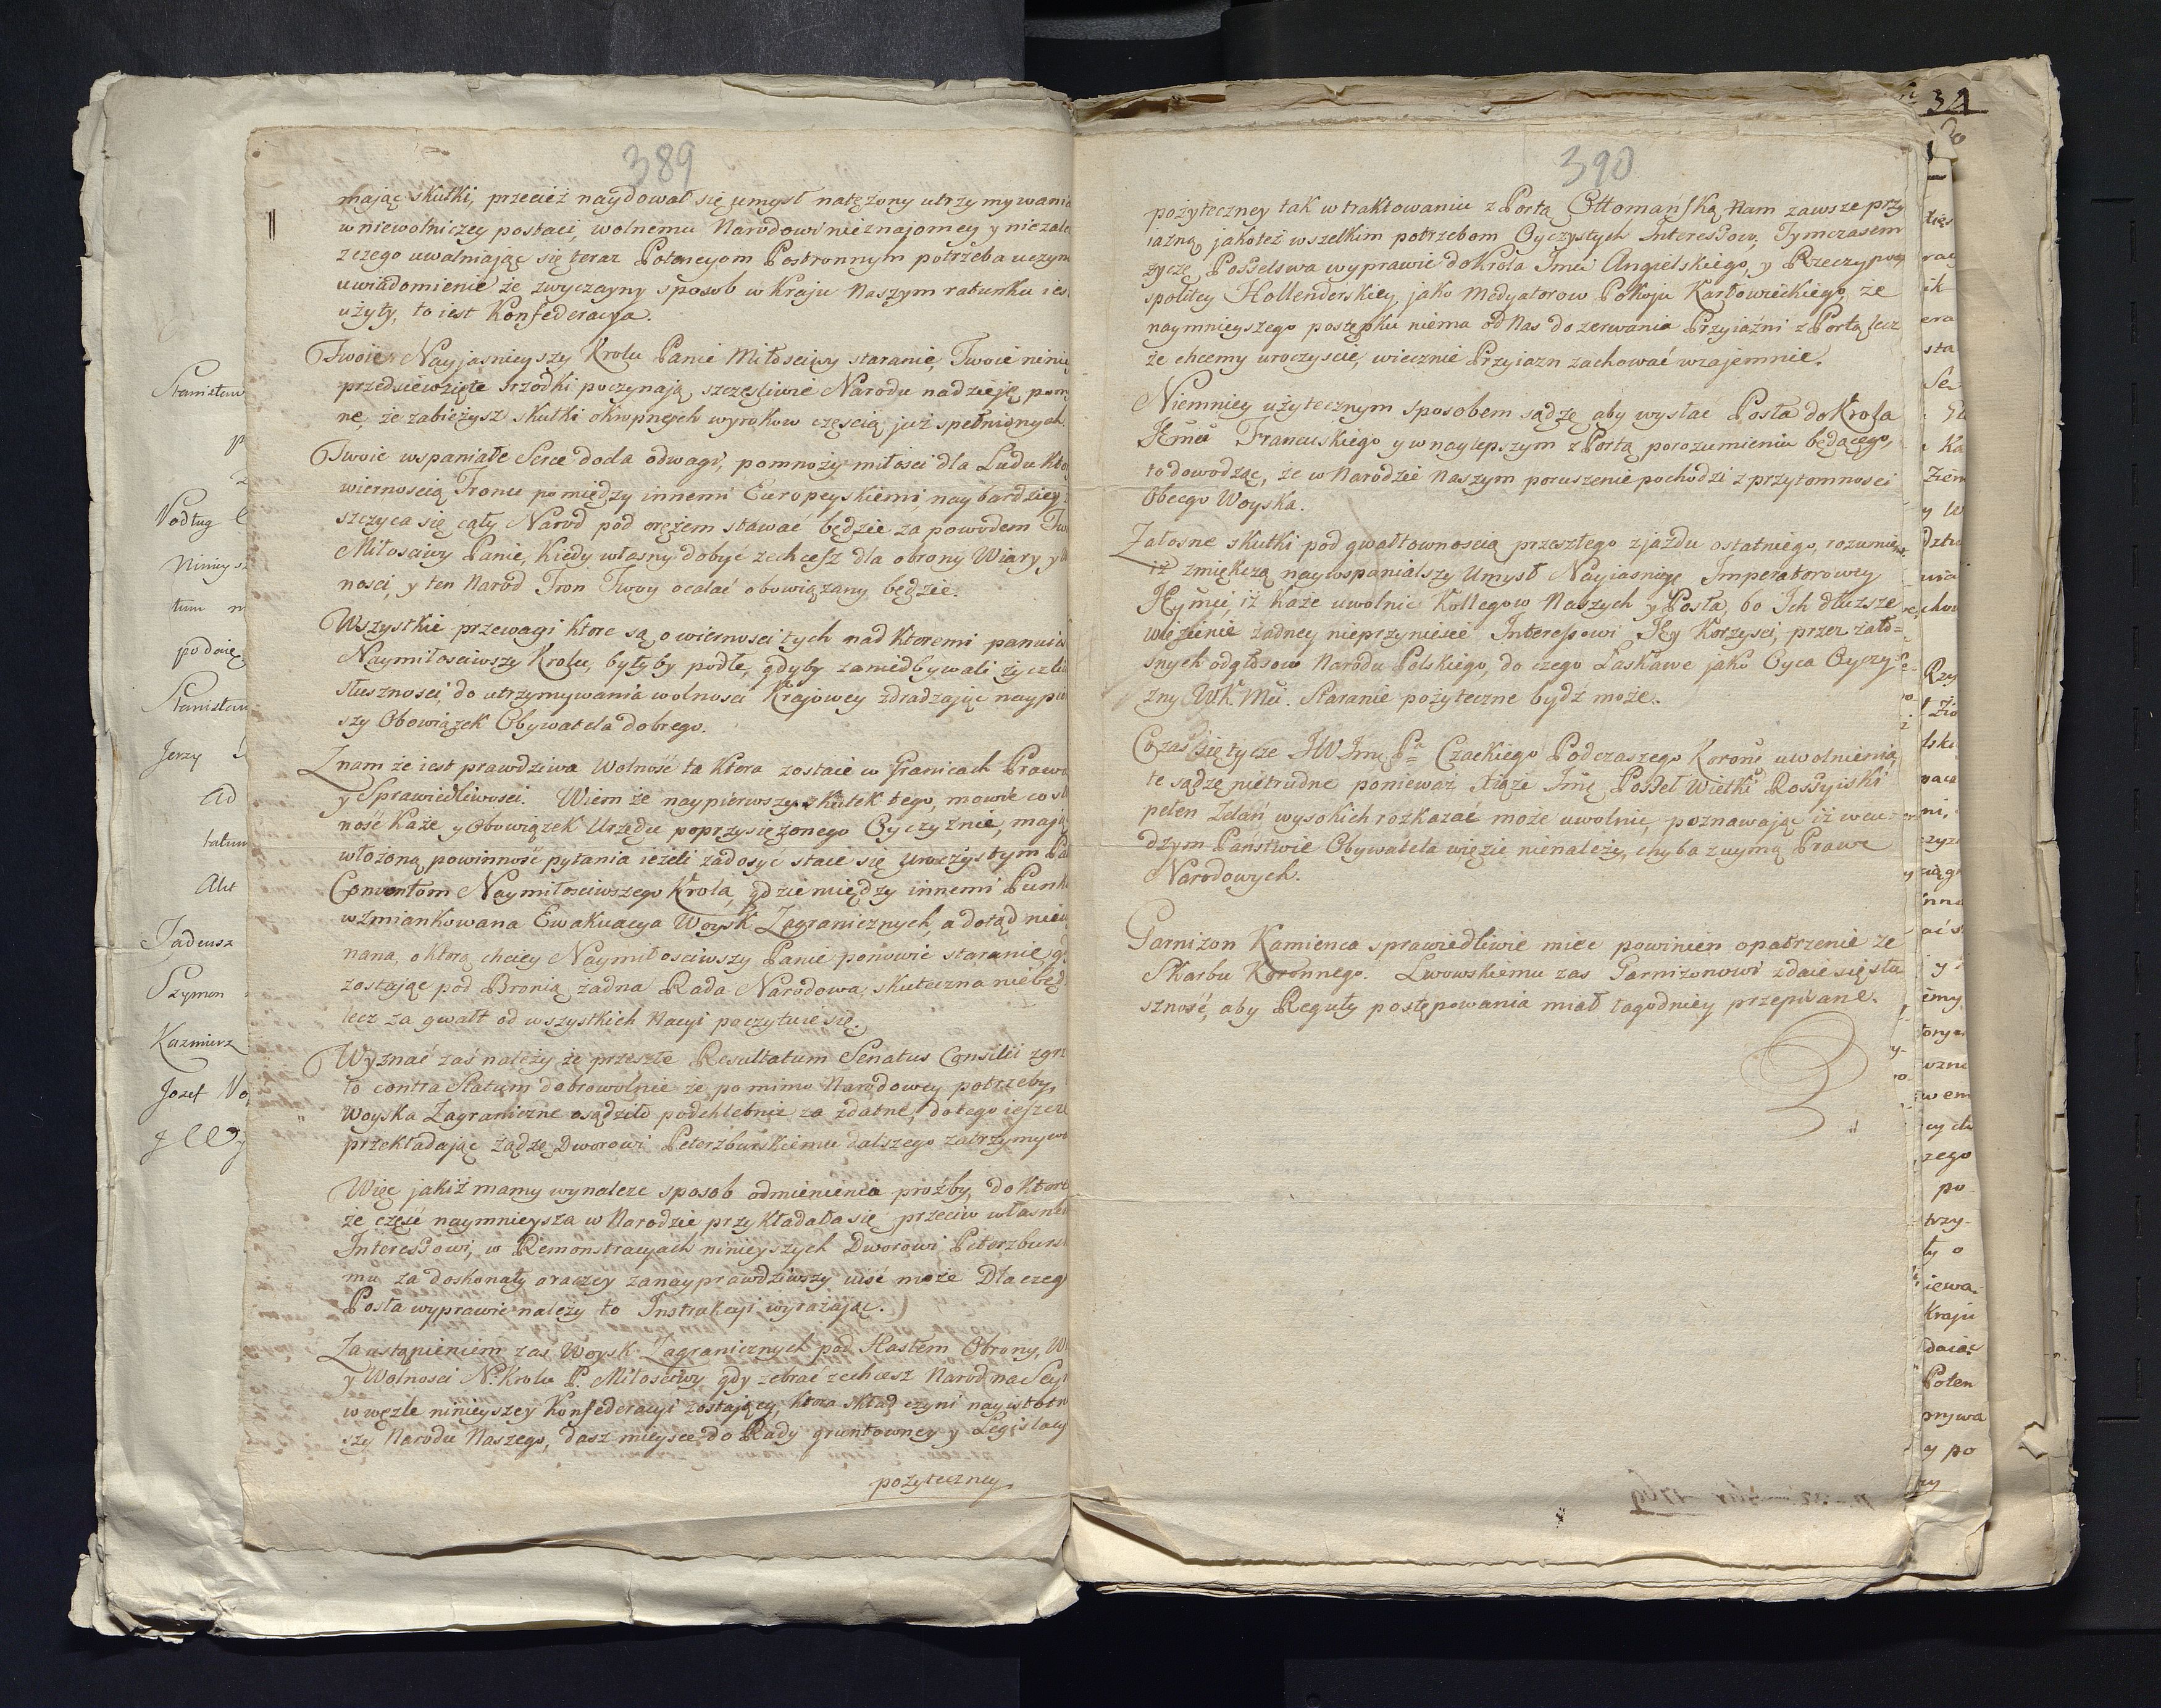 389
mając skutki, przecież naydował się umysł natężony utrzymywania
w niewolniczey postaci, wolnemu Narodowi nieznajomey y niezale
z czego uwalniając się teraz Potencyom Postronnym potrzeba uczyn
uwiadomienie że zwyczayny sposob w Kraju Naszym ratunku ies
użyty, to iest Konfederacya.
Twoie Nayjasnieyszy Krolu Panie Miłosciwy staranie, Twoie nini
przedsięwzięte srzodki poczynają szczęsliwie Narodu nadzieję pom
ne, że zabieżysz skutki okropnych wyrokow częscią już spełnionych.
Twoie wspaniałe Serce doda odwagi, pomnoży miłosci dla Ludu kto
wiernoscią Tronu pomiędzy innemi Europeyskiemi naybardziey
szczyca się cały Narod pod orężem stawać będzie za powodem Tw
Miłosciwy Panie, Kiedy własny dobyć zechcesz dla obrony Wiary y
nosci, y ten Narod Tron Twoy ocalać obowiązany będzie.
Wszystkie przewagi ktore są o wiernosci tych nad ktoremi panuies
Naymiłosciwszy Krolu, byłyby podłe, gdyby zaniedbywali życzli
słusznosci, do utrzymywania wolnosci Krajowey zdradzając naypi
szy Obowiązek Obywatela dobrego.
Znam że iest prawdziwa Wolność ta ktora zostaie w Granicach Prawa
y Sprawiedliwosci. Wiem że naypierwszy skutek tego, mowić co sł
ność każe y Obowiązek Urzędu poprzysiężonego Oyczyznie, mają
włożoną powinność pytania ieżeli zadosyć staie się uroczystym Pa
Conventom Naymiłosciwszego Krola, gdzie między innemi Punk
wzmiankowana Ewakuacya Woysk Zagranicznych, a dotąd nie
nana, o ktorą chciey Naymiłosciwszy Panie ponowić staranie, g
zostając pod Bronią żadna Rada Narodowa, skuteczna nie będ
lecz za gwałt od wszystkich Nacyi poczytuie się.
Wyznać zaś należy że przeszłe Resultatum Senatus Consilii zgrz
to contra Statum dobrowolnie że pomimo Narodowey potrzeby,
Woyska Zagraniczne osądziło podchlebnie za zdatne, do tego ieszcze
przekładając żądzę Dworowi Peterzburskiemu dalszego zatrzymywa
Więc jakiż mamy wynalesc sposob odmienienia proźby, do ktore
że częsć naymnieysza w Narodzie przykładała się przeciw własne
Interessowi, w Remonstracyach ninieyszych Dworowi Peterzburs
mu za doskonały araczey za nayprawdziwszy uisć może Dla czeg
Posła wyprawić należy to Instrukcyi wyrażając.
Za ustąpieniem zaś Woysk Zagranicznych pod Hasłem Obrony, W
y Wolnosci N. Krolu P. Miłosciwy gdy zebrać zechcesz Narod na Sey
w węzle ninieyszey Konfederacyi zostający, ktora skład czyni nayistotn
szy Narodu Naszego, dasz mieysce do Rady gruntowney y Legislacy
pożyteczney
390
pożyteczney tak w traktowaniu z Portą Ottomańską Nam zawsze przy
iazną, jako też wszelkim potrzebom Oyczystych Interessow, Tymczasem
życzę Posselswa wyprawić do Krola Imci Angielskiego, y Rzeczypos
politey Hollenderskiey, jako Medyatorow Pokoju Karłowickiego, że
naymnieyszego postępku niema od Nas do zerwania Przyiaźni z Portą lecz
że chcemy uroczyscie, wiecznie Przyiazn zachować wzajemnie.
Niemniey użytecznym sposobem sądzę aby wysłać Posła do Krola
Jmci Francuskiego y w naylepszym z Portą porozumieniu będącego,
to dowodząc, że w Narodzie Naszym poruszenie pochodzi z przytomnosci
Obcego Woyska.
Załosne skutki pod gwałtownoscią przeszłego zjazdu ostatniego, rozumiem
iż zmiękczą naywspanialszy Umysł Nayiasnieyszey Imperatorowey
Jey mci, iż każe uwolnić Kollegow Naszych y Posła, bo Ich dłuższe
więzienie żadney nieprzyniesie Interessowi Jey Korzysci, przez żało=
snych odgłosow Narodu Polskiego, do czego Łaskawe jako Oyca Oyczy=
zny WKMci. Staranie pożyteczne bydź może.
Co zaś się tycze JW Jmc Pa Czackiego Podczaszego Koronę uwolnienia,
te sądzę nietrudne ponieważ Xiąże Imę Possel Wielki Rossyiski
pełen Zdań wysokich rozkazać może uwolnić, poznawając iż w cu=
dzym Państwie Obywatela więzić nienależy, chyba zwymą Praw
Narodowych.
Garnizon Kamienca sprawiedliwie miec powinien opatrzenie ze
Skarbu Koronnego. Lwowskiemu zas Garnizonowi zdaie się słu
szność, aby Reguły postępowania miał łagodniey przepisane.